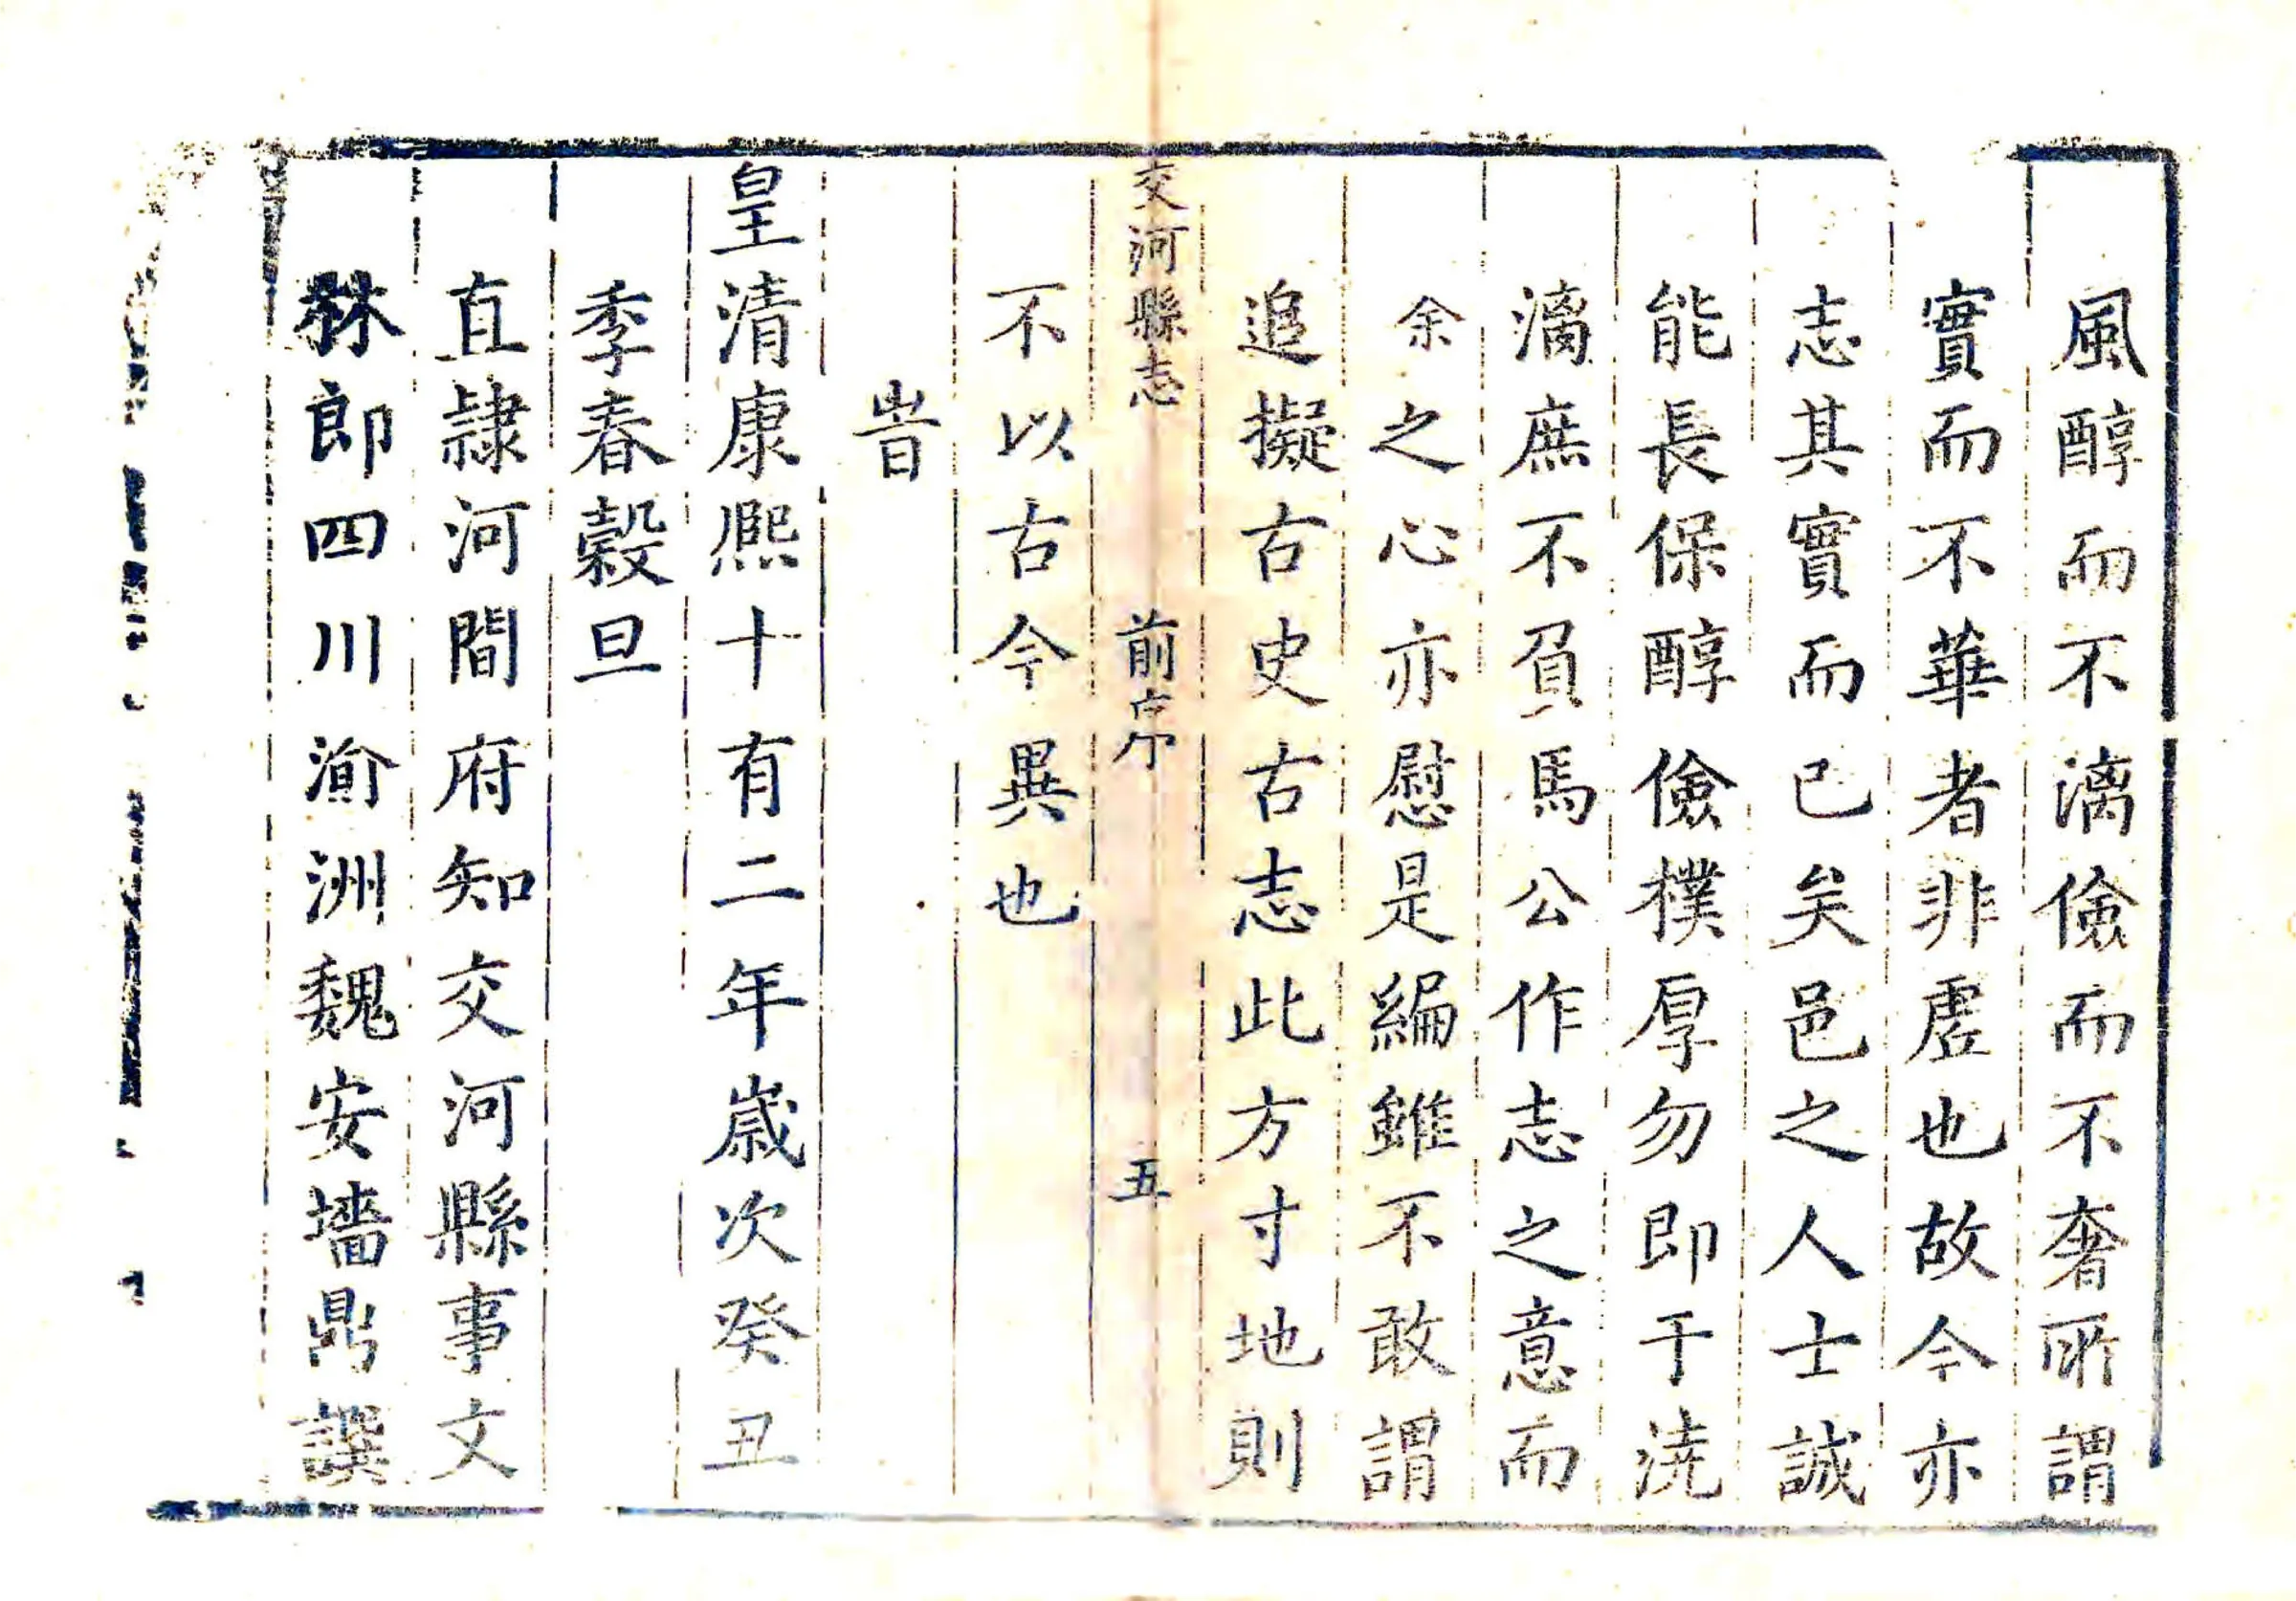 風醇而不漓儉而不奢所謂
實而不華者非虛也故今亦
志其實而已矣邑之人士誠
能長保醇儉樸厚勿即于澆
漓庶不負馬公作志之意而
余之心亦慰是編雖不敢謂
追擬古史古志此方寸地則
交河縣志 前序 五
不以古今異也
旹
皇清康熙十有二年歲次癸丑
季春穀旦
直隸河間府知交河縣事文
林郎四川渝洲魏安墻鼎譔